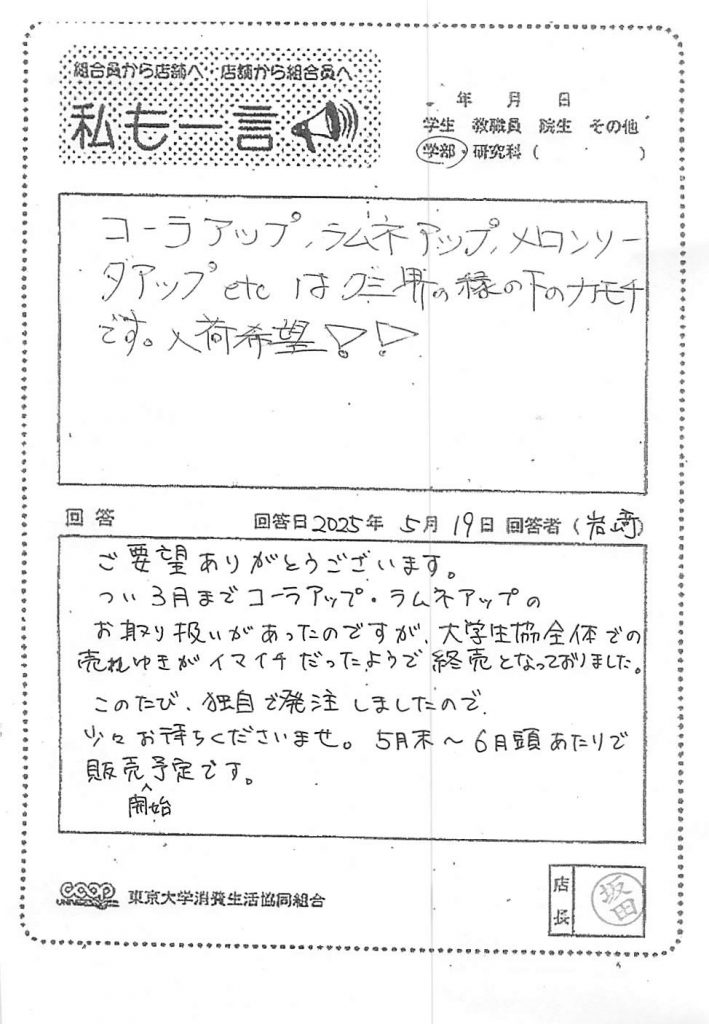 組合員から店舗へ 店舗から組合員へ
私も一言
年 月 日
学生 教職員 院生 その他
学部・研究科 ( )
コーラアップ, ラムネアップ, メロンソー
ダアップ etc は グミ界の縁の下の力モチ
です。入荷希望!!
回答 回答日 2025年 5月 19日 回答者 (岩崎)
ご要望ありがとうございます。
つい3月までコーラアップ・ラムネアップの
お取り扱いがあったのですが、大学生協全体での
売れゆきがイマイチだったようで終売となっておりました。
このたび、独自で発注しましたので、
少々お待ちくださいませ。5月末〜6月頭あたりで
販売開始予定です。
coop
東京大学消費生活協同組合
店長
坂田